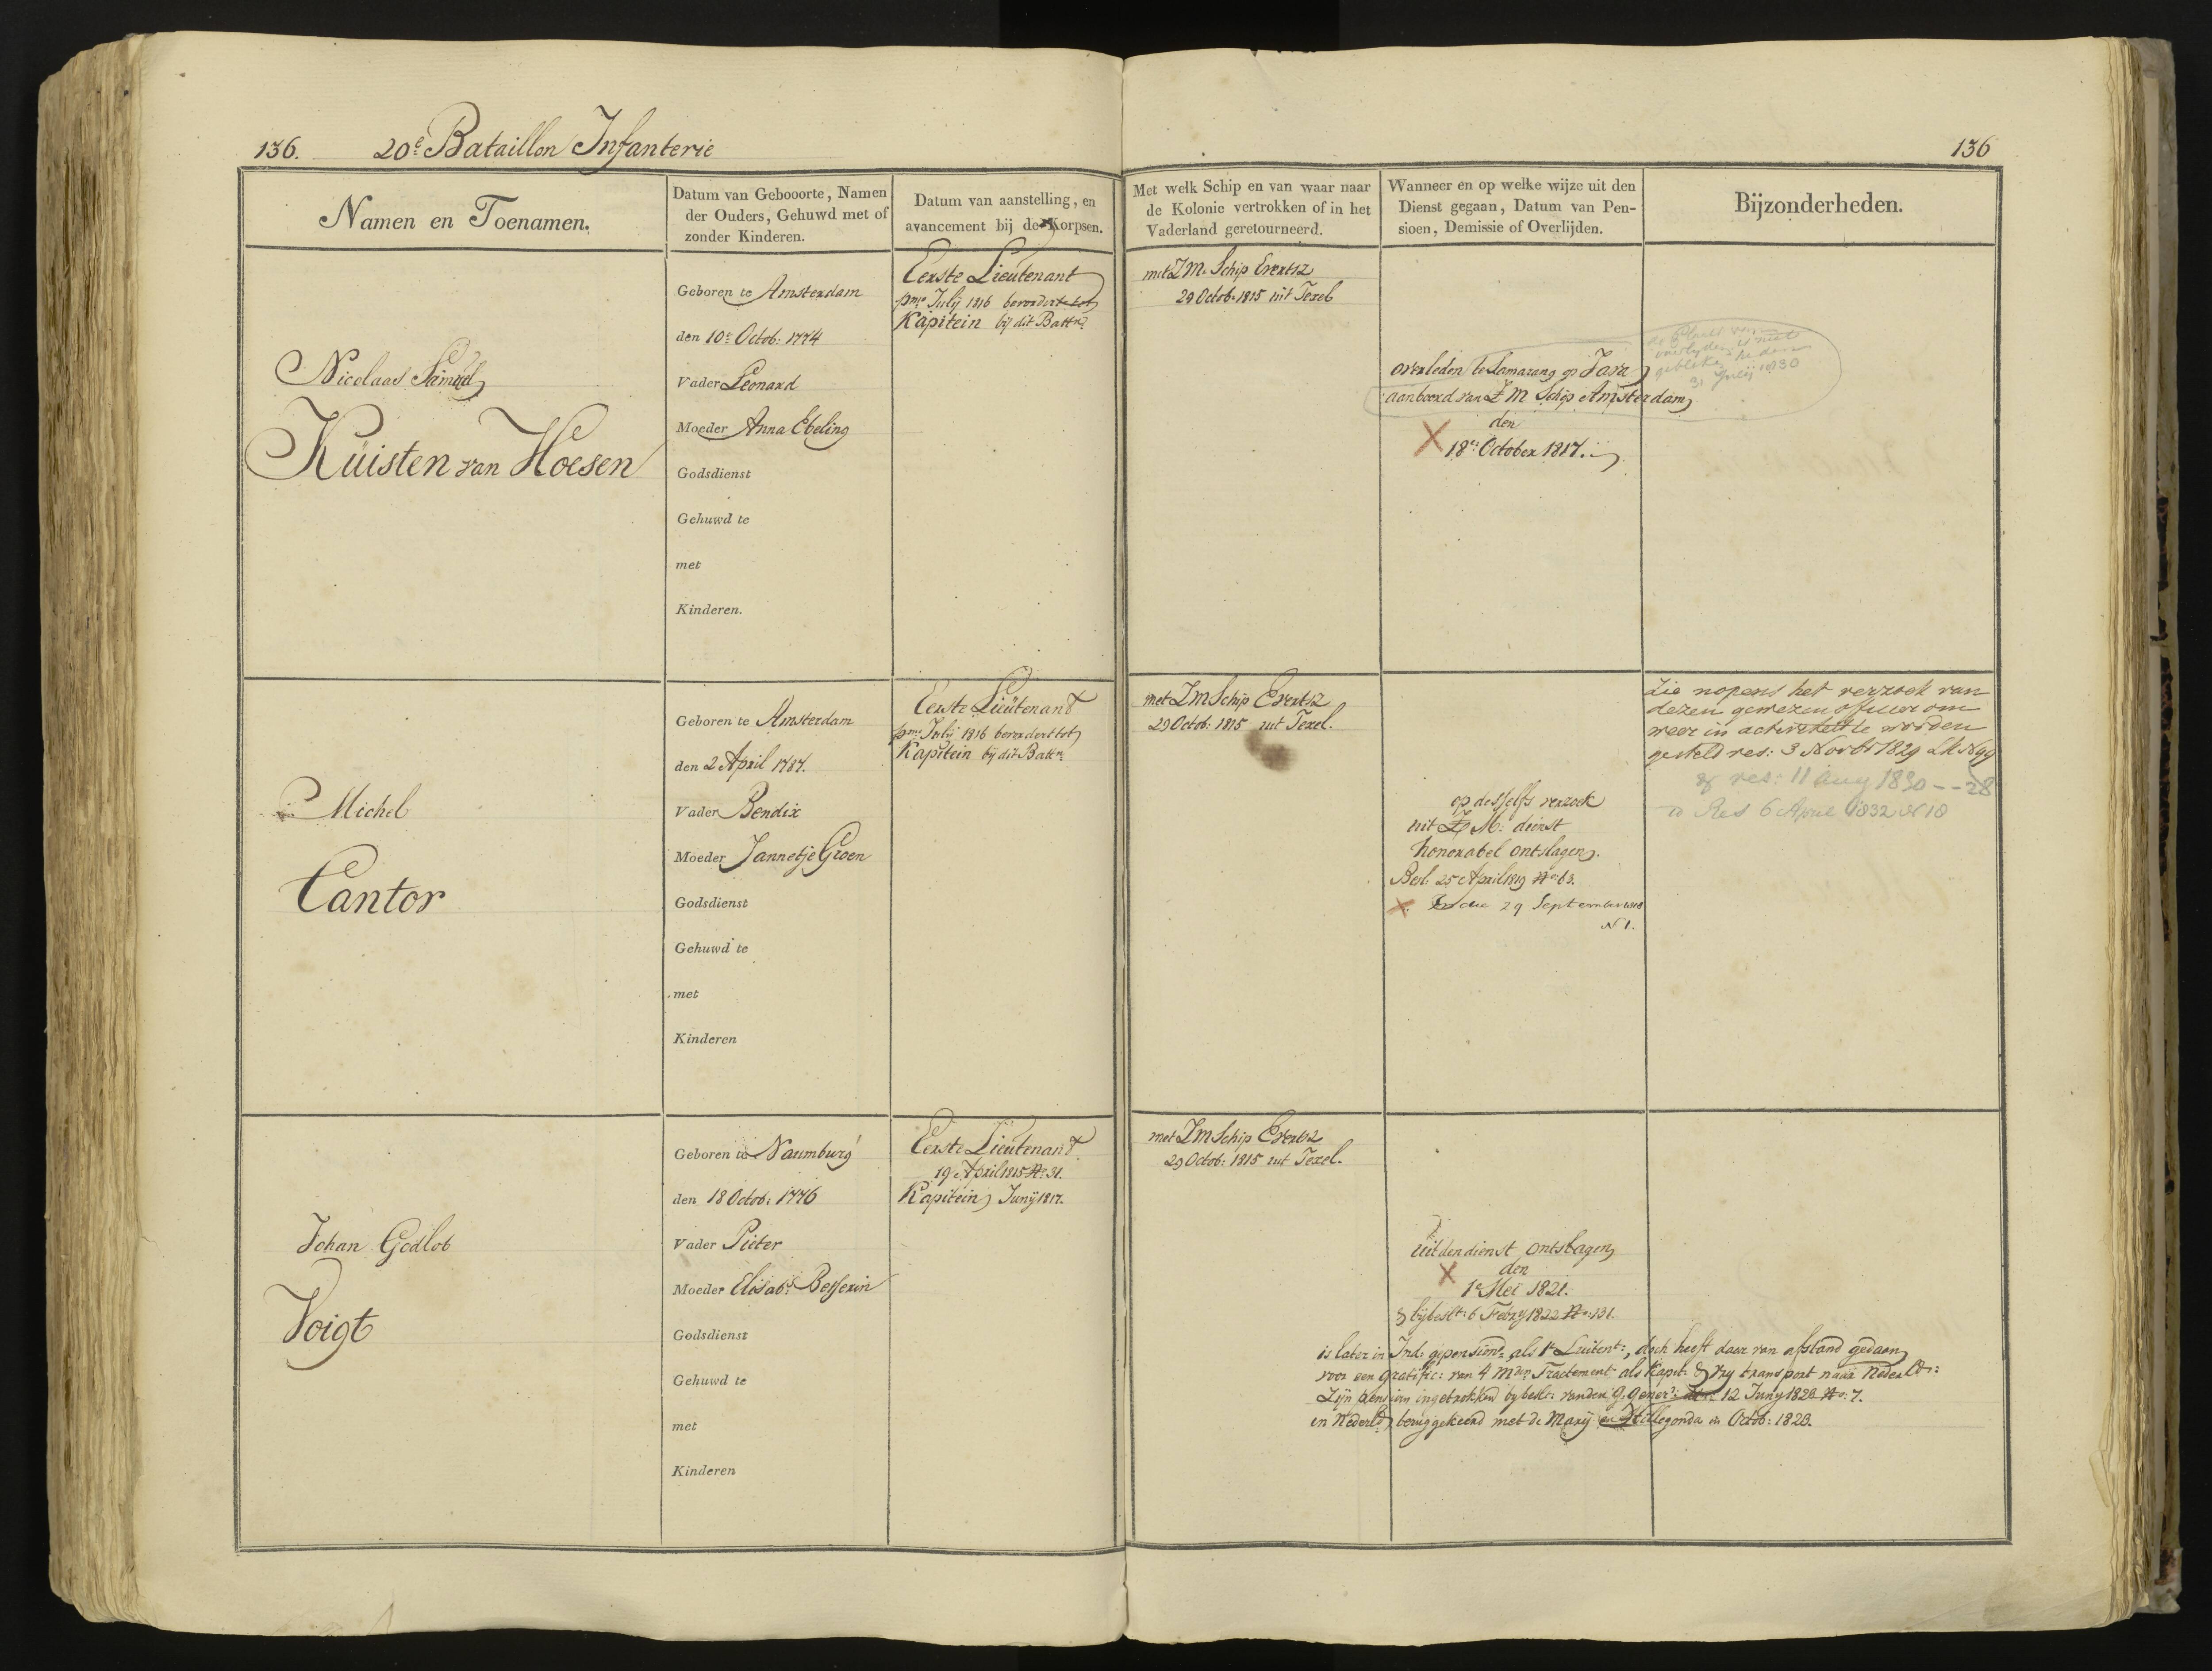 136. 20e Bataillon Infanterie
136
Namen en Toenamen.
Datum van Gebooorte, Namen
der Ouders, Gehuwd met of
zonder Kinderen.
Datum van aanstelling, en
avancement bij de Korpsen.
Met welk Schip en van waar naar
de Kolonie vertrokken of in het
Vaderland geretourneerd.
Wanneer en op welke wijze uit den
Dienst gegaan, Datum van Pen-
sioen, Demissie of Overlijden.
Bijzonderheden.
Nicolaas Samuel
Küisten van Hoesen
Geboren te Amsterdam
den 10e Octob: 1774
Vader Leonard
Moeder Anna Ebeling
Godsdienst
Gehuwd te
met
Kinderen.
Eerste Lieutenant
pmo July 1816 bevordert tot
Kapitein bij dit Battn
met ZM. Schip Evertsz
29 Octob. 1815 uit Texel
overleden te Samarang op Java
aanboord van Z M Schip Amsterdam
den
18e October 1817.
de Plaats van
overlyden is niet
gebleken heden
31 July 1830
Michel
Cantor
Geboren te Amsterdam
den 2 April 1787.
Vader Bendix
Moeder Jannetje Groen
Godsdienst
Gehuwd te
met
Kinderen
Eerste Lieütenant
pmo July 1816 bevordert tot
Kapitein bij dit Battn
met ZM Schip Evertsz
29 Octob: 1815 uit Texel.
op desselfs verzoek
uit Z M: dienst
honorabel ontslagen.
Besl. 25 April 1819 No: 63.
29 September 1818
N 1.
Zie nopens het verzoek van
dezen gewezen officier om
weer in activiteit te worden
gesteld res: 3 Novbr 1829 N 99
& res: 11 Aug 1830 -- 28
Res 6 April 1832 N 18
Johan Godlob
Voigt
Geboren te Naumburg
den 18 Octob: 1776
Vader Pieter
Moeder Elisabt Besserin
Godsdienst
Gehuwd te
met
Kinderen
Eerste Lieutenant
19 April 1815 No: 31.
Kapitein Junij 1817.
met ZM Schip Evertsz
29 Octob: 1815 uit Texel.
uit den dienst ontslagen
den
1e Mei 1821.
& bij beslt: 6 Febry 1822 No: 131.
is later in Ind: gepensione als 1e Luitent:, doch heeft daar van afstand gedaan
voor een gratific: van 4 Mdn Tractement als Kapt: & vry transport naar Nederld:
Zijn pensioen ingetrokken by beslt: van den G. Gener: 12 Juny 1828 No: 7.
en Nederld teruggekeerd met de Mary en Hillegonda in Octob: 1828.